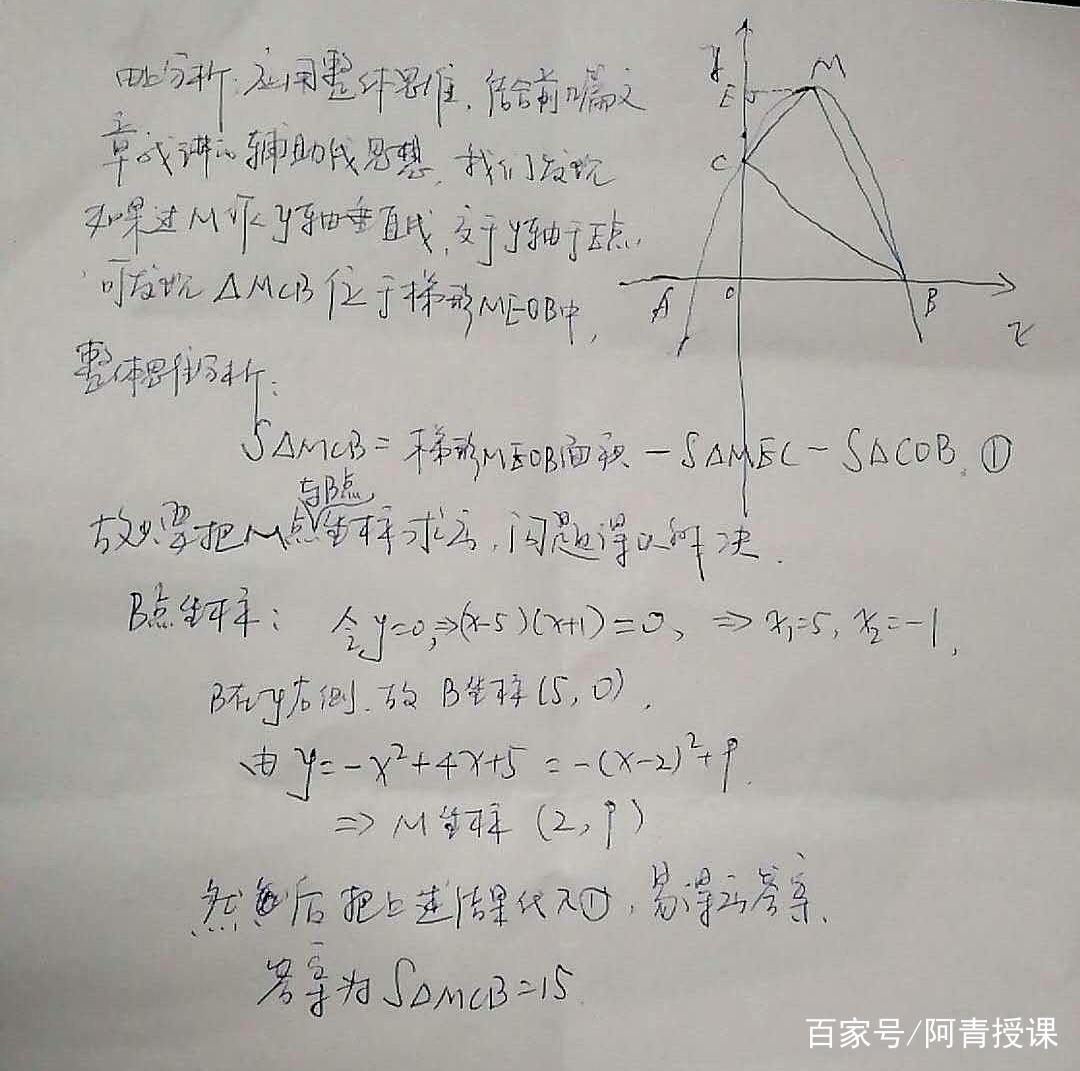 由上分析:应用整体思维,结合前几篇文
章我讲的辅助线思想,我们发现
如果过M作y轴垂直线,交于y轴于E点,
可发现△MCB位于梯形MEOB中,
整体思维分析:
S△MCB=梯形MEOB面积-S△MEC-S△COB.①
与B点
故只要把M点坐标求出,问题得以解决.
B点坐标: 令y=0,⇒(x-5)(x+1)=0, ⇒x₁=5, x₂=-1,
B在y右侧.故B坐标(5,0),
由y=-x²+4x+5=-(x-2)²+9.
⇒M坐标(2,9)
然后把上述结果代入①,易得出答案.
答案为S△MCB=15.
y
M
E
C
A
O
B
x
百家号/阿青授课